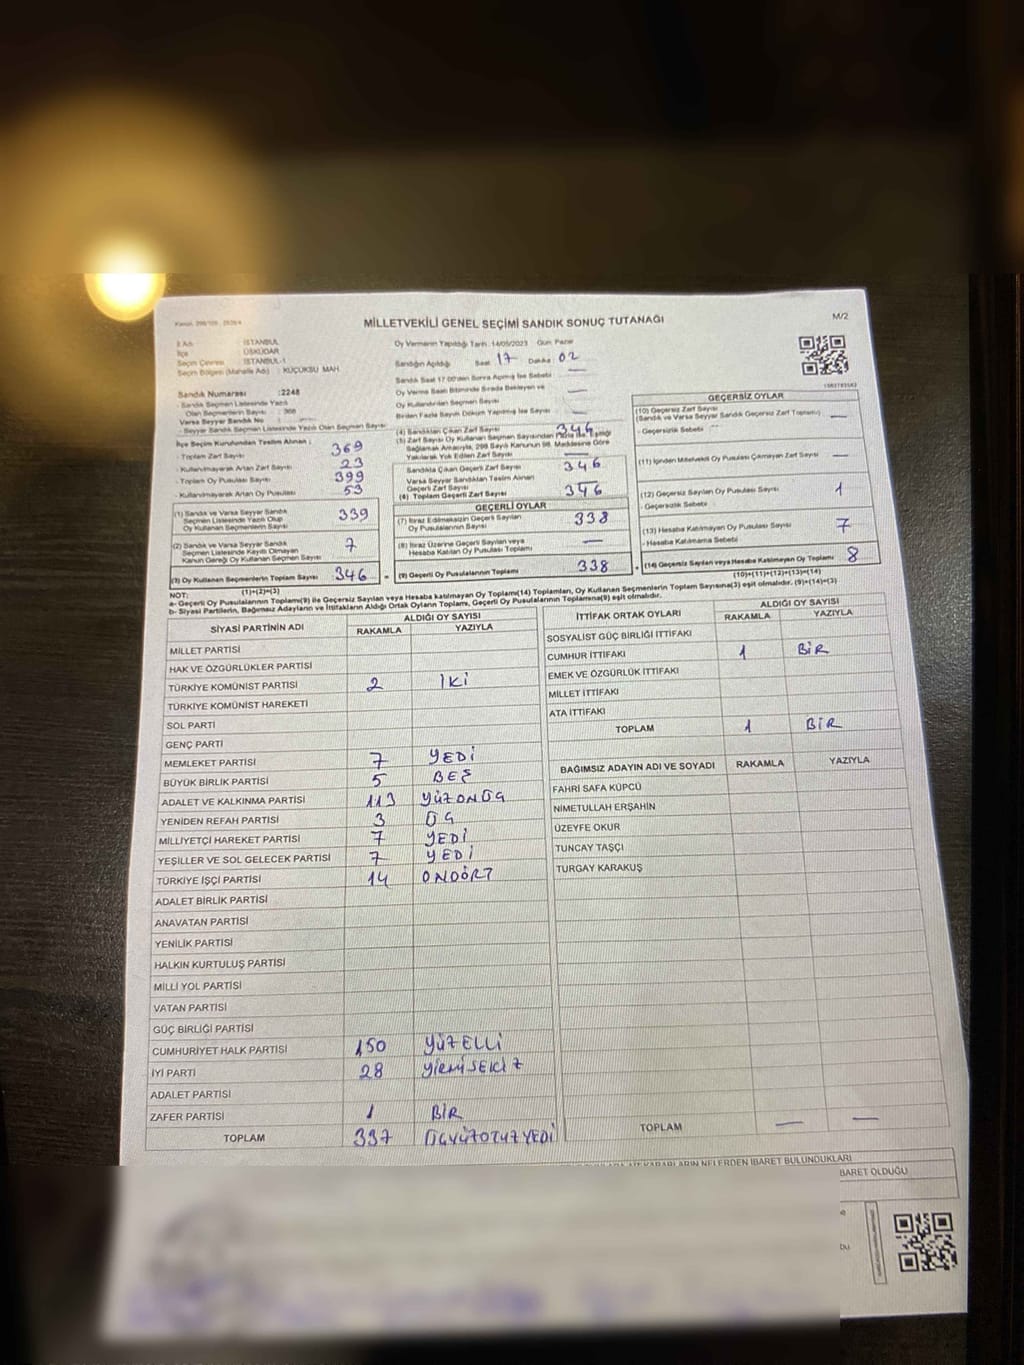 MİLLETVEKİLİ GENEL SEÇİMİ SANDIK SONUÇ TUTANAĞI
M/2
İli Adı : İSTANBUL
İlçe : ÜSKÜDAR
Seçim Çevresi : İSTANBUL-1
Seçim Bölgesi (Mahalle Adı) : KÜÇÜKSU MAH.
Sandık Numarası :2248
- Sandık Seçmen Listesinde Yazılı
Olan Seçmenlerin Sayısı
Varsa Seyyar Sandık No
- Seyyar Sandık Seçmen Listesinde Yazılı Olan Seçmen Sayısı
Oy Vermenin Yapıldığı Tarih :14/05/2023 Gün: Pazar
Sandığın Açıldığı Saat 17 Dakika 02
Sandık Saat 17:00'den Sonra Açılmış İse Sebebi —
Oy Verme Saati Bitiminde Sırada Bekleyen ve
Oy Kullandırılan Seçmen Sayısı —
Birden Fazla Sayım Döküm Yapılmış İse Sayısı —
İlçe Seçim Kurulundan Teslim Alınan ;
- Toplam Zarf Sayısı 369
- Kullanılmayarak Artan Zarf Sayısı 23
- Toplam Oy Pusulası Sayısı 399
- Kullanılmayarak Artan Oy Pusulası 53
(1) Sandık ve Varsa Seyyar Sandık
Seçmen Listesinde Yazılı Olup
Oy Kullanan Seçmenlerin Sayısı 339
(2) Sandık ve Varsa Seyyar Sandık
Seçmen Listesinde Kayıtlı Olmayan
Kanun Gereği Oy Kullanan Seçmen Sayısı 7
(3) Oy Kullanan Seçmenlerin Toplam Sayısı 346
(1)+(2)=(3)
(4) Sandıktan Çıkan Zarf Sayısı 346
(5) Zarf Sayısı Oy Kullanan Seçmen Sayısından Fazla İse, Eşitliği
Sağlamak Amacıyla, 298 Sayılı Kanunun 98. Maddesine Göre
Yakılarak Yok Edilen Zarf Sayısı —
Sandıkta Çıkan Geçerli Zarf Sayısı 346
Varsa Seyyar Sandıktan Teslim Alınan
Geçerli Zarf Sayısı —
(6) Toplam Geçerli Zarf Sayısı 346
GEÇERLİ OYLAR
(7) İtiraz Edilmeksizin Geçerli Sayılan
Oy Pusulalarının Sayısı 338
(8) İtiraz Üzerine Geçerli Sayılan veya
Hesaba Katılan Oy Pusulası Toplamı —
(9) Geçerli Oy Pusulalarının Toplamı 338
GEÇERSİZ OYLAR
(10) Geçersiz Zarf Sayısı
(Sandık ve Varsa Seyyar Sandık Geçersiz Zarf Toplamı) —
- Geçersizlik Sebebi
(11) İçinden Milletvekili Oy Pusulası Çıkmayan Zarf Sayısı —
(12) Geçersiz Sayılan Oy Pusulası Sayısı 1
- Geçersizlik Sebebi
(13) Hesaba Katılmayan Oy Pusulası Sayısı 7
- Hesaba Katılmama Sebebi
(14) Geçersiz Sayılan veya Hesaba Katılmayan Oy Toplamı 8
(10)+(11)+(12)+(13)=(14)
NOT:
a- Geçerli Oy Pusulaları Toplamı(9) ile Geçersiz Sayılan veya Hesaba katılmayan Oy Toplamı(14) Toplamları, Oy Kullanan Seçmenlerin Toplam Sayısına(3) eşit olmalıdır. (9)+(14)=(3)
b- Siyasi Partilerin, Bağımsız Adayların ve İttifakların Aldığı Ortak Oyların Toplamı, Geçerli Oy Pusulalarının Toplamına(9) eşit olmalıdır.
SİYASİ PARTİNİN ADI ALDIĞI OY SAYISI
RAKAMLA YAZIYLA
MİLLET PARTİSİ
HAK VE ÖZGÜRLÜKLER PARTİSİ
TÜRKİYE KOMÜNİST PARTİSİ 2 İKİ
TÜRKİYE KOMÜNİST HAREKETİ
SOL PARTİ
GENÇ PARTİ
MEMLEKET PARTİSİ 7 YEDİ
BÜYÜK BİRLİK PARTİSİ 5 BEŞ
ADALET VE KALKINMA PARTİSİ 113 YÜZONÜÇ
YENİDEN REFAH PARTİSİ 3 ÜÇ
MİLLİYETÇİ HAREKET PARTİSİ 7 YEDİ
YEŞİLLER VE SOL GELECEK PARTİSİ 7 YEDİ
TÜRKİYE İŞÇİ PARTİSİ 14 ONDÖRT
ADALET BİRLİK PARTİSİ
ANAVATAN PARTİSİ
YENİLİK PARTİSİ
HALKIN KURTULUŞ PARTİSİ
MİLLİ YOL PARTİSİ
VATAN PARTİSİ
GÜÇ BİRLİĞİ PARTİSİ
CUMHURİYET HALK PARTİSİ 150 YÜZELLİ
İYİ PARTİ 28 YİRMİSEKİZ
ADALET PARTİSİ
ZAFER PARTİSİ 1 BİR
TOPLAM 337 ÜÇYÜZOTUZYEDİ
İTTİFAK ORTAK OYLARI ALDIĞI OY SAYISI
RAKAMLA YAZIYLA
SOSYALİST GÜÇ BİRLİĞİ İTTİFAKI
CUMHUR İTTİFAKI 1 BİR
EMEK VE ÖZGÜRLÜK İTTİFAKI
MİLLET İTTİFAKI
ATA İTTİFAKI
TOPLAM 1 BİR
BAĞIMSIZ ADAYIN ADI VE SOYADI RAKAMLA YAZIYLA
FAHRİ SAFA KÜPCÜ
NİMETULLAH ERŞAHİN
ÜZEYFE OKUR
TUNCAY TAŞÇI
TURGAY KARAKUŞ
TOPLAM — —
NELERDEN İBARET BULUNDUKLARI
BARET OLDUĞU